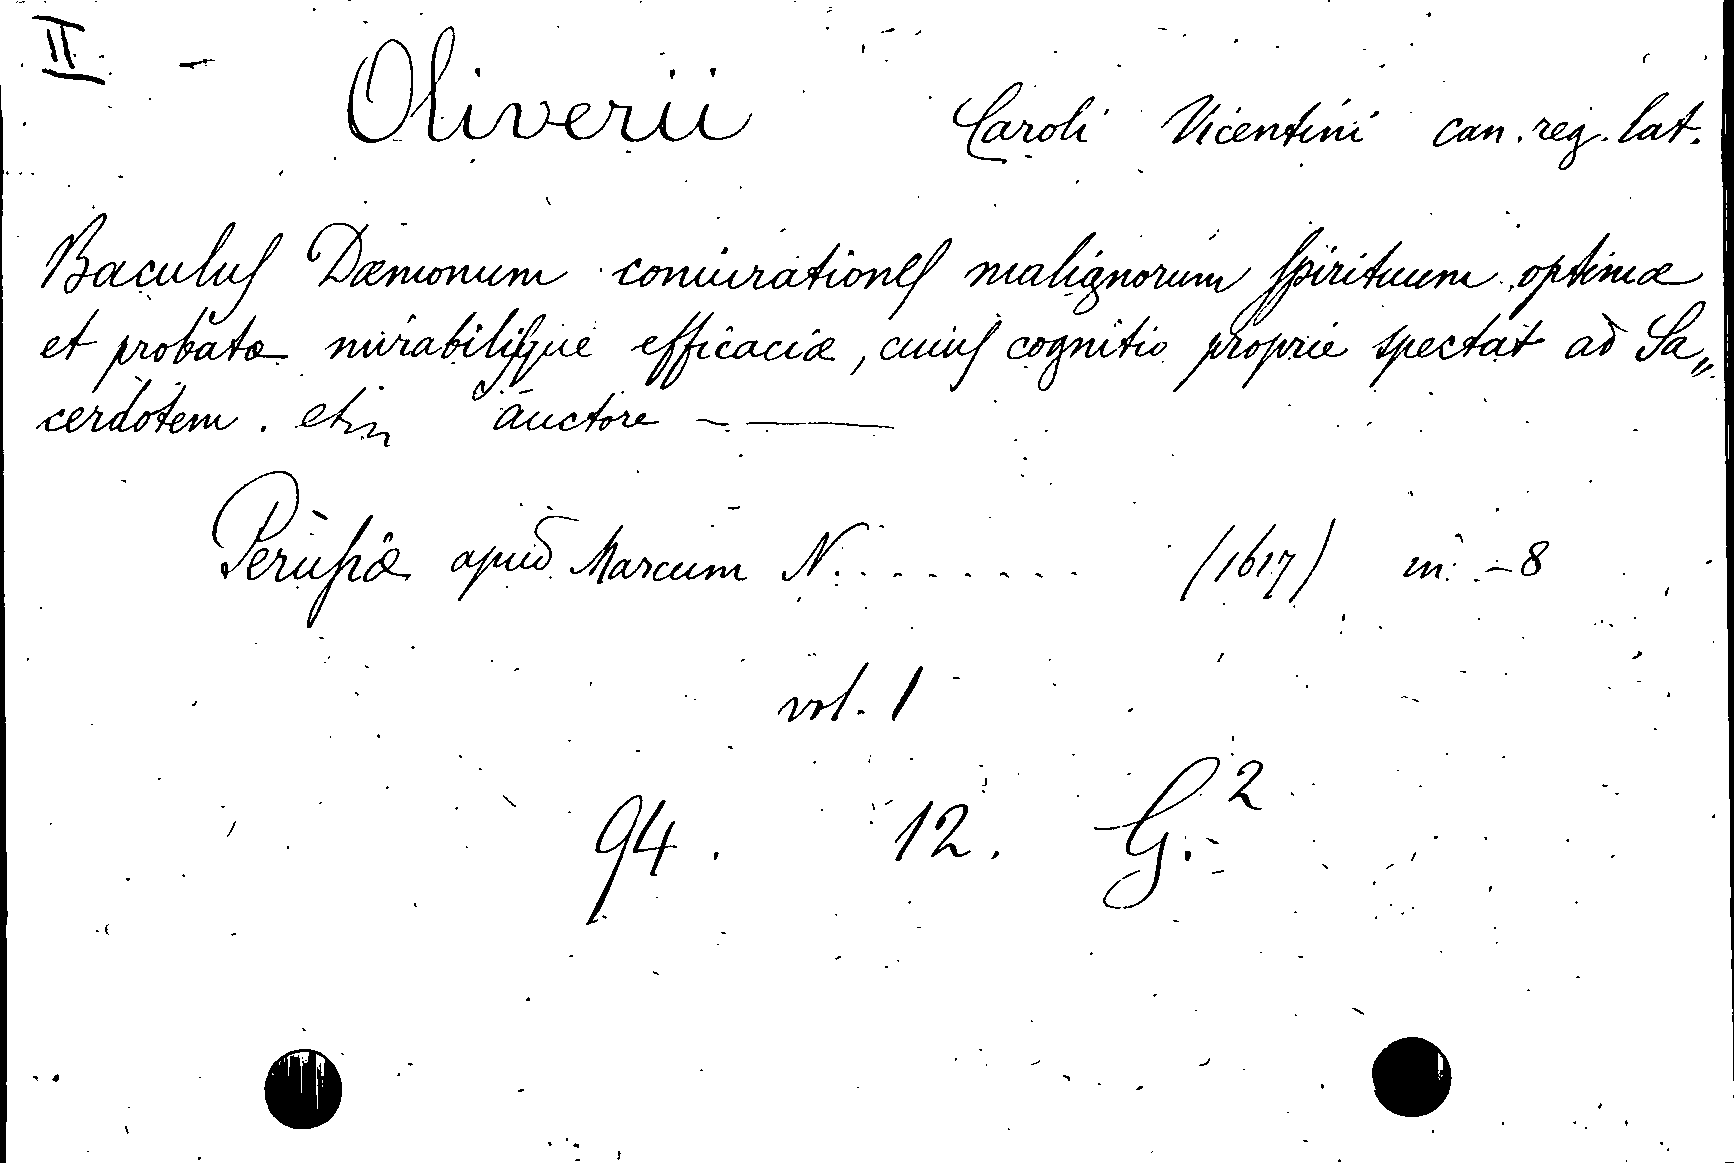 II. -
Oliverii Caroli Vicentini can. reg. lat.
Baculus Dæmonum coniurationes malignorum spirituum optimæ
et probatæ mirabilisque efficaciæ, cuius cognitio proprie spectat ad Sa„
cerdotem. auctore ——
Perusiæ apud Marcum N......... (1617) in -8
vol. 1
94. 12. G.2